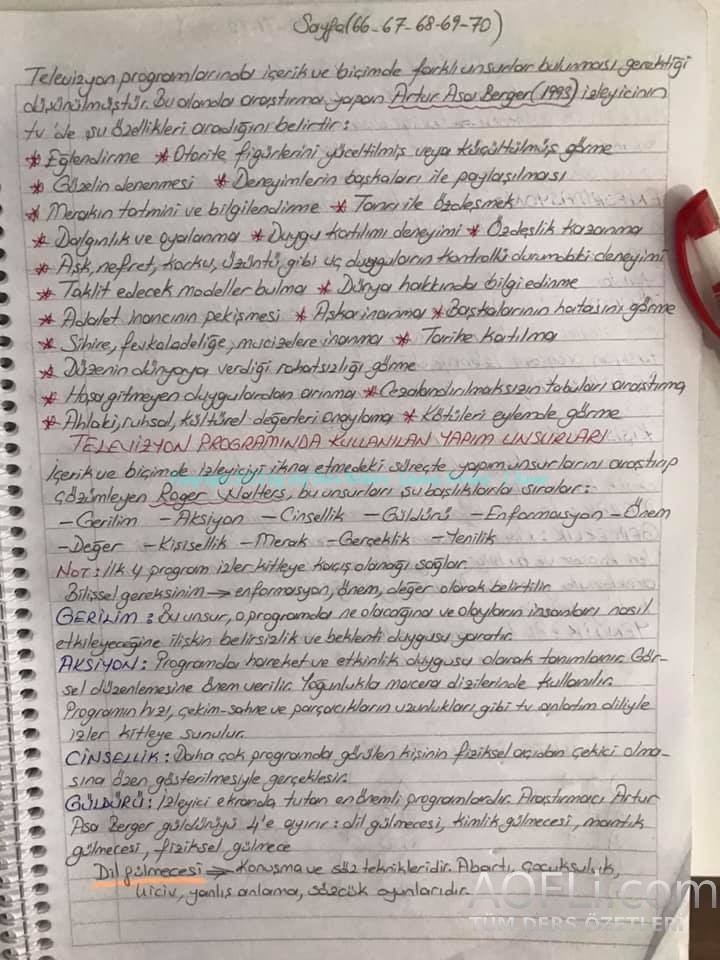 Sayfa(66-67-68-69-70)
Televizyon programlarında içerik ve biçimde farklı unsurlar bulunması gerektiği
düşünülmüştür. Bu alanda araştırma yapan Artur Asa Berger (1993) izleyicinin
tv'de şu özellikleri aradığını belirtir:
* Eğlendirme * Otorite figürlerini yüceltilmiş veya küçültülmüş görme
* Güzelin denenmesi * Deneyimlerin başkaları ile paylaşılması
* Merakın tatmini ve bilgilendirme * Tanrı ile özdeşmek
* Dalgınlık ve oyalanma * Duygu katılımı deneyimi * Özdeşlik kazanma
* Aşk, nefret, korku, üzüntü, gibi uç duyguların kontrollü durumdaki deneyimi
* Taklit edecek modeller bulma * Dünya hakkında bilgi edinme
* Adalet inancının pekişmesi * Aşka inanma * Başkalarının hatasını görme
* Sihire, fevkaladeliğe, mucizelere inanma * Tarihe katılma
* Düzenin dünyaya verdiği rahatsızlığı görme
* Hoşa gitmeyen duygulardan arınma * Cezalandırılmaksızın tabuları araştırma
* Ahlaki, ruhsal, kültürel değerleri onaylama * Kötüleri eylemde görme
TELEVİZYON PROGRAMINDA KULLANILAN YAPIM UNSURLARI
İçerik ve biçimde izleyiciyi ikna etmedeki süreçte yapım unsurlarını araştırıp
çözümleyen Roger Walters, bu unsurları şu başlıklarla sıralar:
- Gerilim - Aksiyon - Cinsellik - Güldürü - Enformasyon - Önem
- Değer - Kişisellik - Merak - Gerçeklik - Yenilik
NOT: İlk 4 program izler kitleye kaçış olanağı sağlar.
Bilişsel gereksinim → enformasyon, önem, değer olarak belirtilir.
GERİLİM: Bu unsur, o programda ne olacağına ve olayların insanları nasıl
etkileyeceğine ilişkin belirsizlik ve beklenti duygusu yaratır.
AKSİYON: Programda hareket ve etkinlik duygusu olarak tanımlanır. Gör-
sel düzenlemesine önem verilir. Yoğunlukla macera dizilerinde kullanılır.
Programın hızı, çekim-sahne ve parçacıkların uzunlukları gibi tv anlatım diliyle
izler kitleye sunulur.
CİNSELLİK: Daha çok programda görülen kişinin fiziksel açıdan çekici olma-
sına özen gösterilmesiyle gerçekleşir.
GÜLDÜRÜ: İzleyici ekranda tutan en önemli programlardır. Araştırmacı Artur
Asa Berger güldürüyü 4'e ayırır: dil gülmecesi, kimlik gülmecesi, mantık
gülmecesi, fiziksel gülmece
Dil gülmecesi → Konuşma ve söz teknikleridir. Abartı, çocuksuluk,
hiciv, yanlış anlama, sözcük oyunlarıdır.
AOFLi.com
TÜM DERS ÖZETLERİ